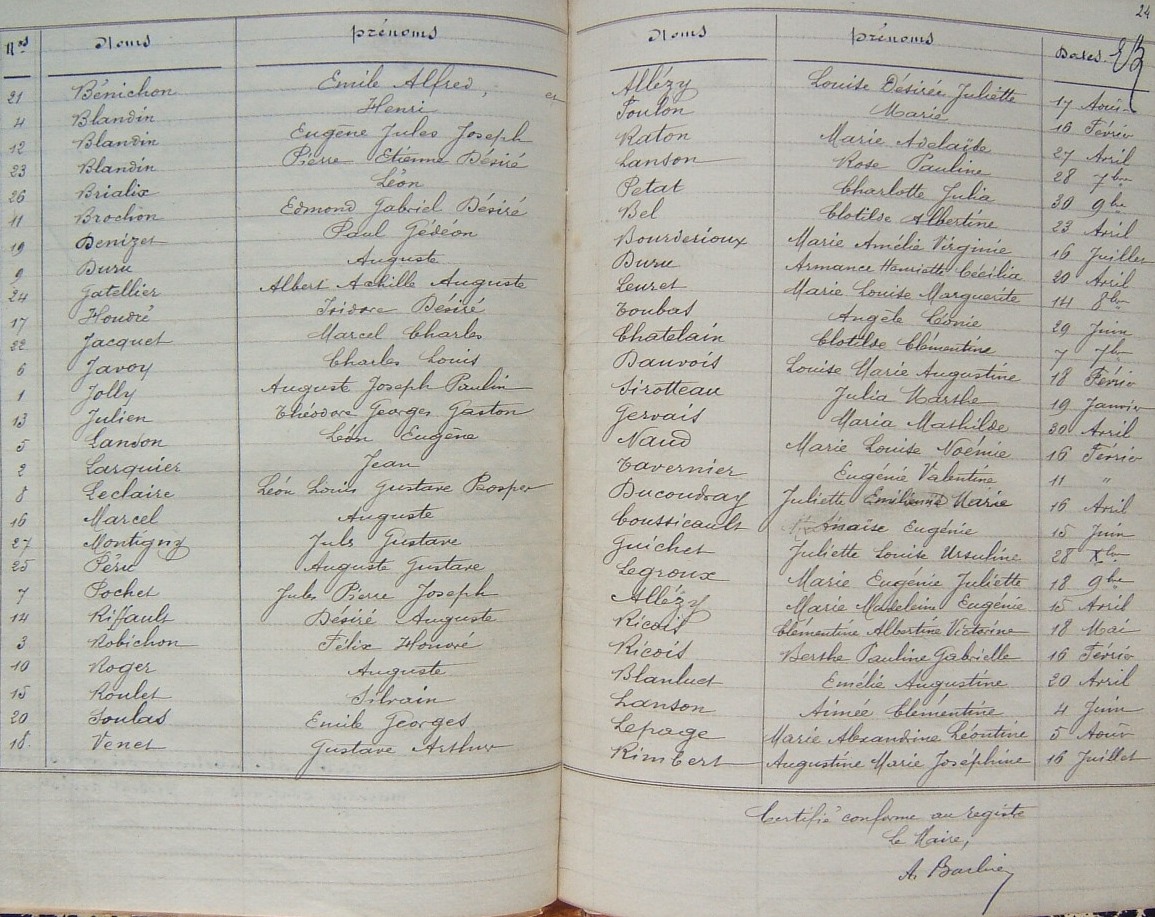 24
Nos Noms prénoms Noms prénoms Dates
21 Bénichon Emile Alfred, et Allézy Louise Désirée Juliette 17 Août
4 Blandin Henri Toulon Marie 16 Févrir
12 Blandin Eugène Jules Joseph Raton Marie Adelaïde 27 Avril
23 Blandin Pierre Etienne Désiré Lanson Rose Pauline 28 7bre
26 Brialix Léon Petat Charlotte Julia 30 9bre
11 Brochon Edmond Gabriel Désiré Bel Clotilde Albertine 23 Avril
19 Denizet Paul Gédéon Bourderioux Marie Amélie Virginie 16 Juillet
9 Duru Auguste Duru Armance Henriette Cécilia 20 Avril
24 Gatellier Albert Achille Auguste Leuret Marie Louise Marguerite 14 8bre
17 Houdré Isidore Désiré Loubas Angèle Léonie 29 Juin
22 Jacquet Marcel Charles Chatelain Clotilde Clémentine 7 7bre
6 Javoy Charles Louis Dauvois Louise Marie Augustine 18 Févrir
1 Jolly Auguste Joseph Paulin Sirotteau Julia Marthe 19 Janvier
13 Julien Théodore Georges Gaston Gervais Maria Mathilde 30 Avril
5 Landon Léon Eugène Naud Marie Louise Noémie 16 Févrir
2 Larquier Jean Tavernier Eugénie Valentine 11 "
8 Leclaire Léon Louis Gustave Prosper Ducoudray Juliette Emilienne Marie 16 Avril
16 Marcel Auguste Coussicault Anaïse Eugénie 15 Juin
27 Montigny Juls Gustave Guichet Juliette Louise Ursuline 28 Xbre
25 Péru Auguste Gustave Legroux Marie Eugénie Juliette 18 9bre
7 Pochet Jules Pierre Joseph Allézy Marie Madeleine Eugénie 15 Avril
14 Riffault Désiré Auguste Ricois Clémentine Albertine Victorine 18 Mai
3 Robichon Félix Honoré Ricois Berthe Pauline Gabrielle 16 Févrir
10 Roger Auguste Blanluet Emélie Augustine 20 Avril
15 Roulet Silvain Lanson Aimée Clémentine 4 Juin
20 Soulas Emile Georges Lepage Marie Alexandrine Léontine 5 Août
18. Venet Gustave Arthur Rimbert Augustine Marie Joséphine 16 Juillet
Certifié conforme au registre
Le Maire,
A. Barbier